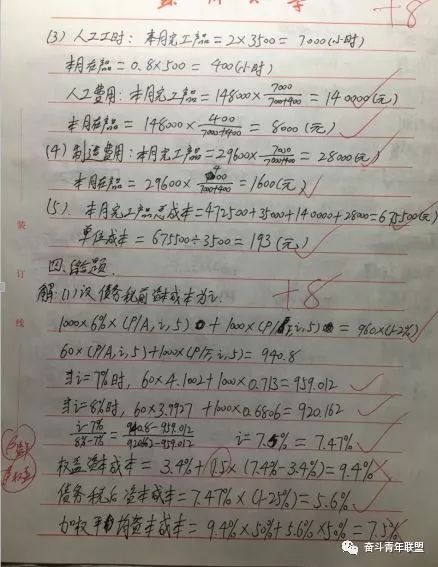 +8
(3) 人工工时: 本月完工产品=2×3500=7000(小时)
本月在产品=0.8×500=400(小时)
人工费用: 本月完工产品=148000×7000/7000+400=140000(元)
本月在产品=148000×400/7000+400=8000(元)
(4) 制造费用: 本月完工产品=29600×7000/7000+400=28000(元)
本月在产品=29600×400/7000+400=1600(元)
(5). 本月完工产品总成本=472500+35000+140000+28000=675500(元)
单位成本=675500÷3500=193(元)
四.
题.
+8
解:(1)设债务税前资本成本为i.
1000×6%×(P/A,i,5)+1000×(P/F,i,5)=960×(1-2%)
60×(P/A,i,5)+1000×(P/F,i,5)=940.8
当i=7%时, 60×4.1002+1000×0.713=959.012
当i=8%时, 60×3.9927+1000×0.6806=920.162
i-7%/8%-7%=940.8-959.012/920.162-959.012 i=7.5%=7.47%
权益资本成本=3.4%+1.5×(7.4%-3.4%)=9.4%
债务税后资本成本=7.47%×(1-25%)=5.6%
加权平均资本成本=9.4%×50%+5.6%×50%=7.5%
装
订
线
奋斗青年联盟